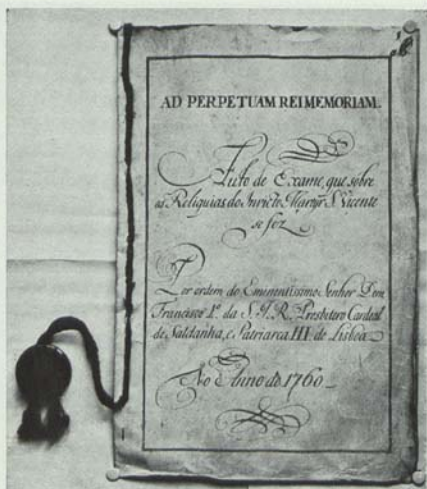 AD PERPETUAM REI MEMORIAM.
Auto de Exame, que sobre
as Reliquias do Invicto Martyr S. Vicente
se fez
Por ordem do Eminentissimo Senhor Dom
Francisco 1º. da S. I. R. Presbitero Cardeal
de Saldanha, e Patriarca III. de Lisboa
No Anno de 1760